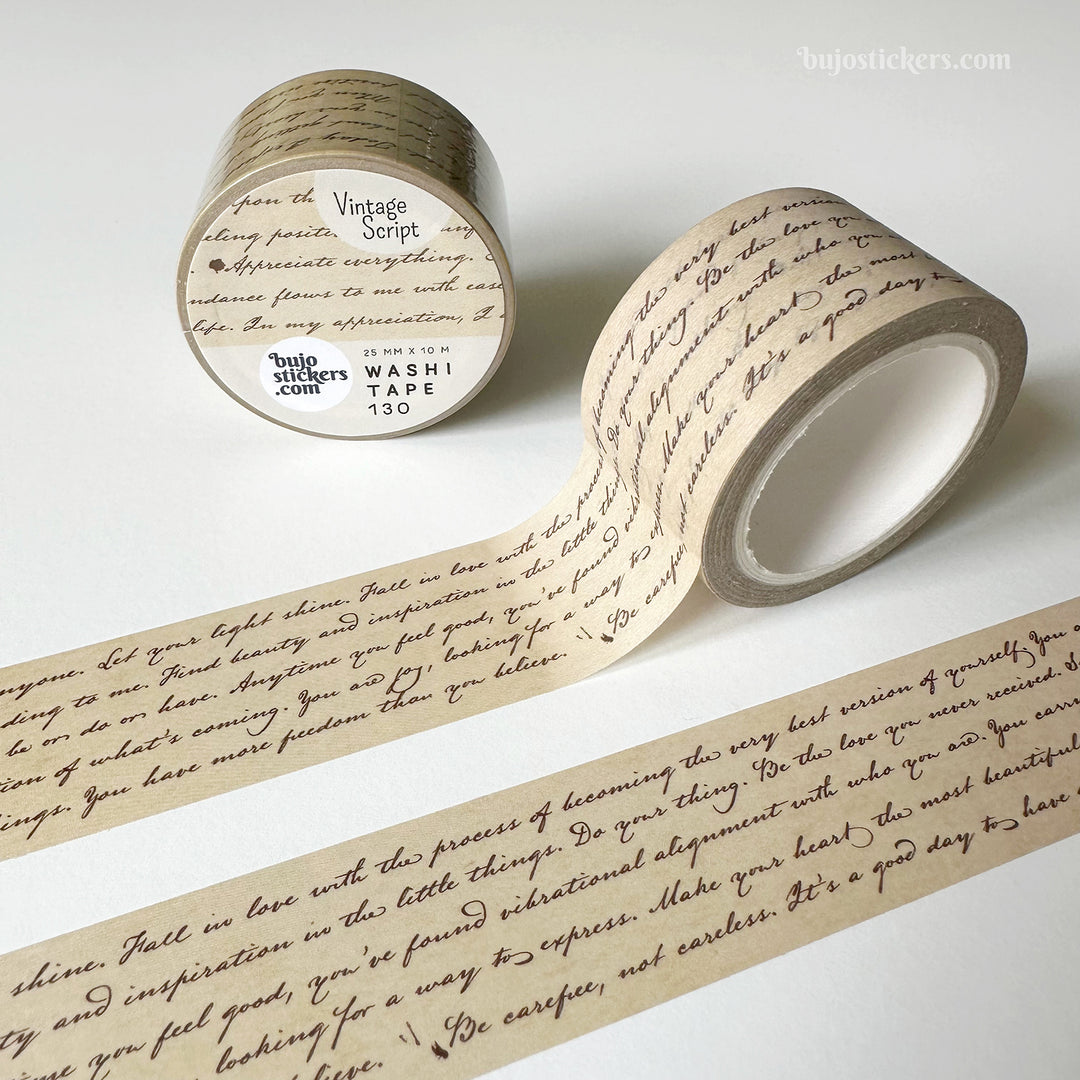 bujostickers.com
Vintage
Script
upon th
eling positi
Appreciate everything.
ndance flows to me with ease
life. In my appreciation, I
bujo
stickers
.com
25 MM X 10 M
WASHI
TAPE
130
becoming the very best version
Do your thing. Be the love you
vibrational alignment with who you
express. Make your heart the most
Be carefree, not careless. It's a good day to
nyone. Let your light shine. Fall in love with the process of
ding to me. Find beauty and inspiration in the little things.
be or do or have. Anytime you feel good, you've found
tion of what's coming. You are joy, looking for a way to
ings. You have more freedom than you believe.
shine. Fall in love with the process of becoming the very best version of yourself. You a
ty and inspiration in the little things. Do your thing. Be the love you never received. S
me you feel good, you've found vibrational alignment with who you are. You carry
looking for a way to express. Make your heart the most beautiful
lieve. Be carefree, not careless. It's a good day to have